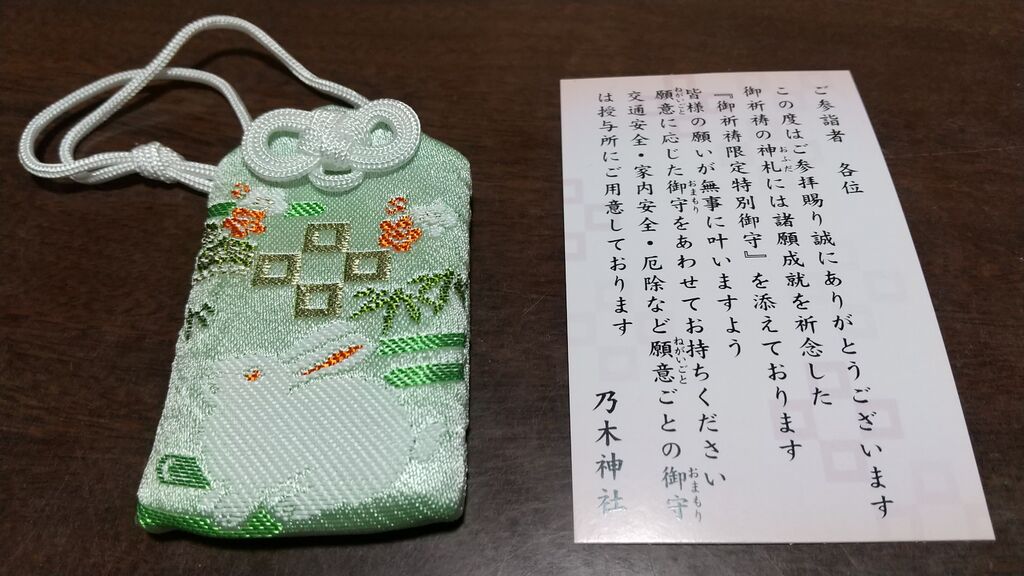 ご参詣者 各位
この度はご参拝賜り誠にありがとうございます
御祈祷の神札には諸願成就を祈念した
おふだ
『御祈祷限定特別御守』を添えております
皆様の願いが無事に叶いますよう
願意に応じた御守をあわせてお持ちください
ねがいごと おまもり
交通安全・家内安全・厄除など願意ごとの御守
ねがいごと おまもり
は授与所にご用意しております
乃木神社